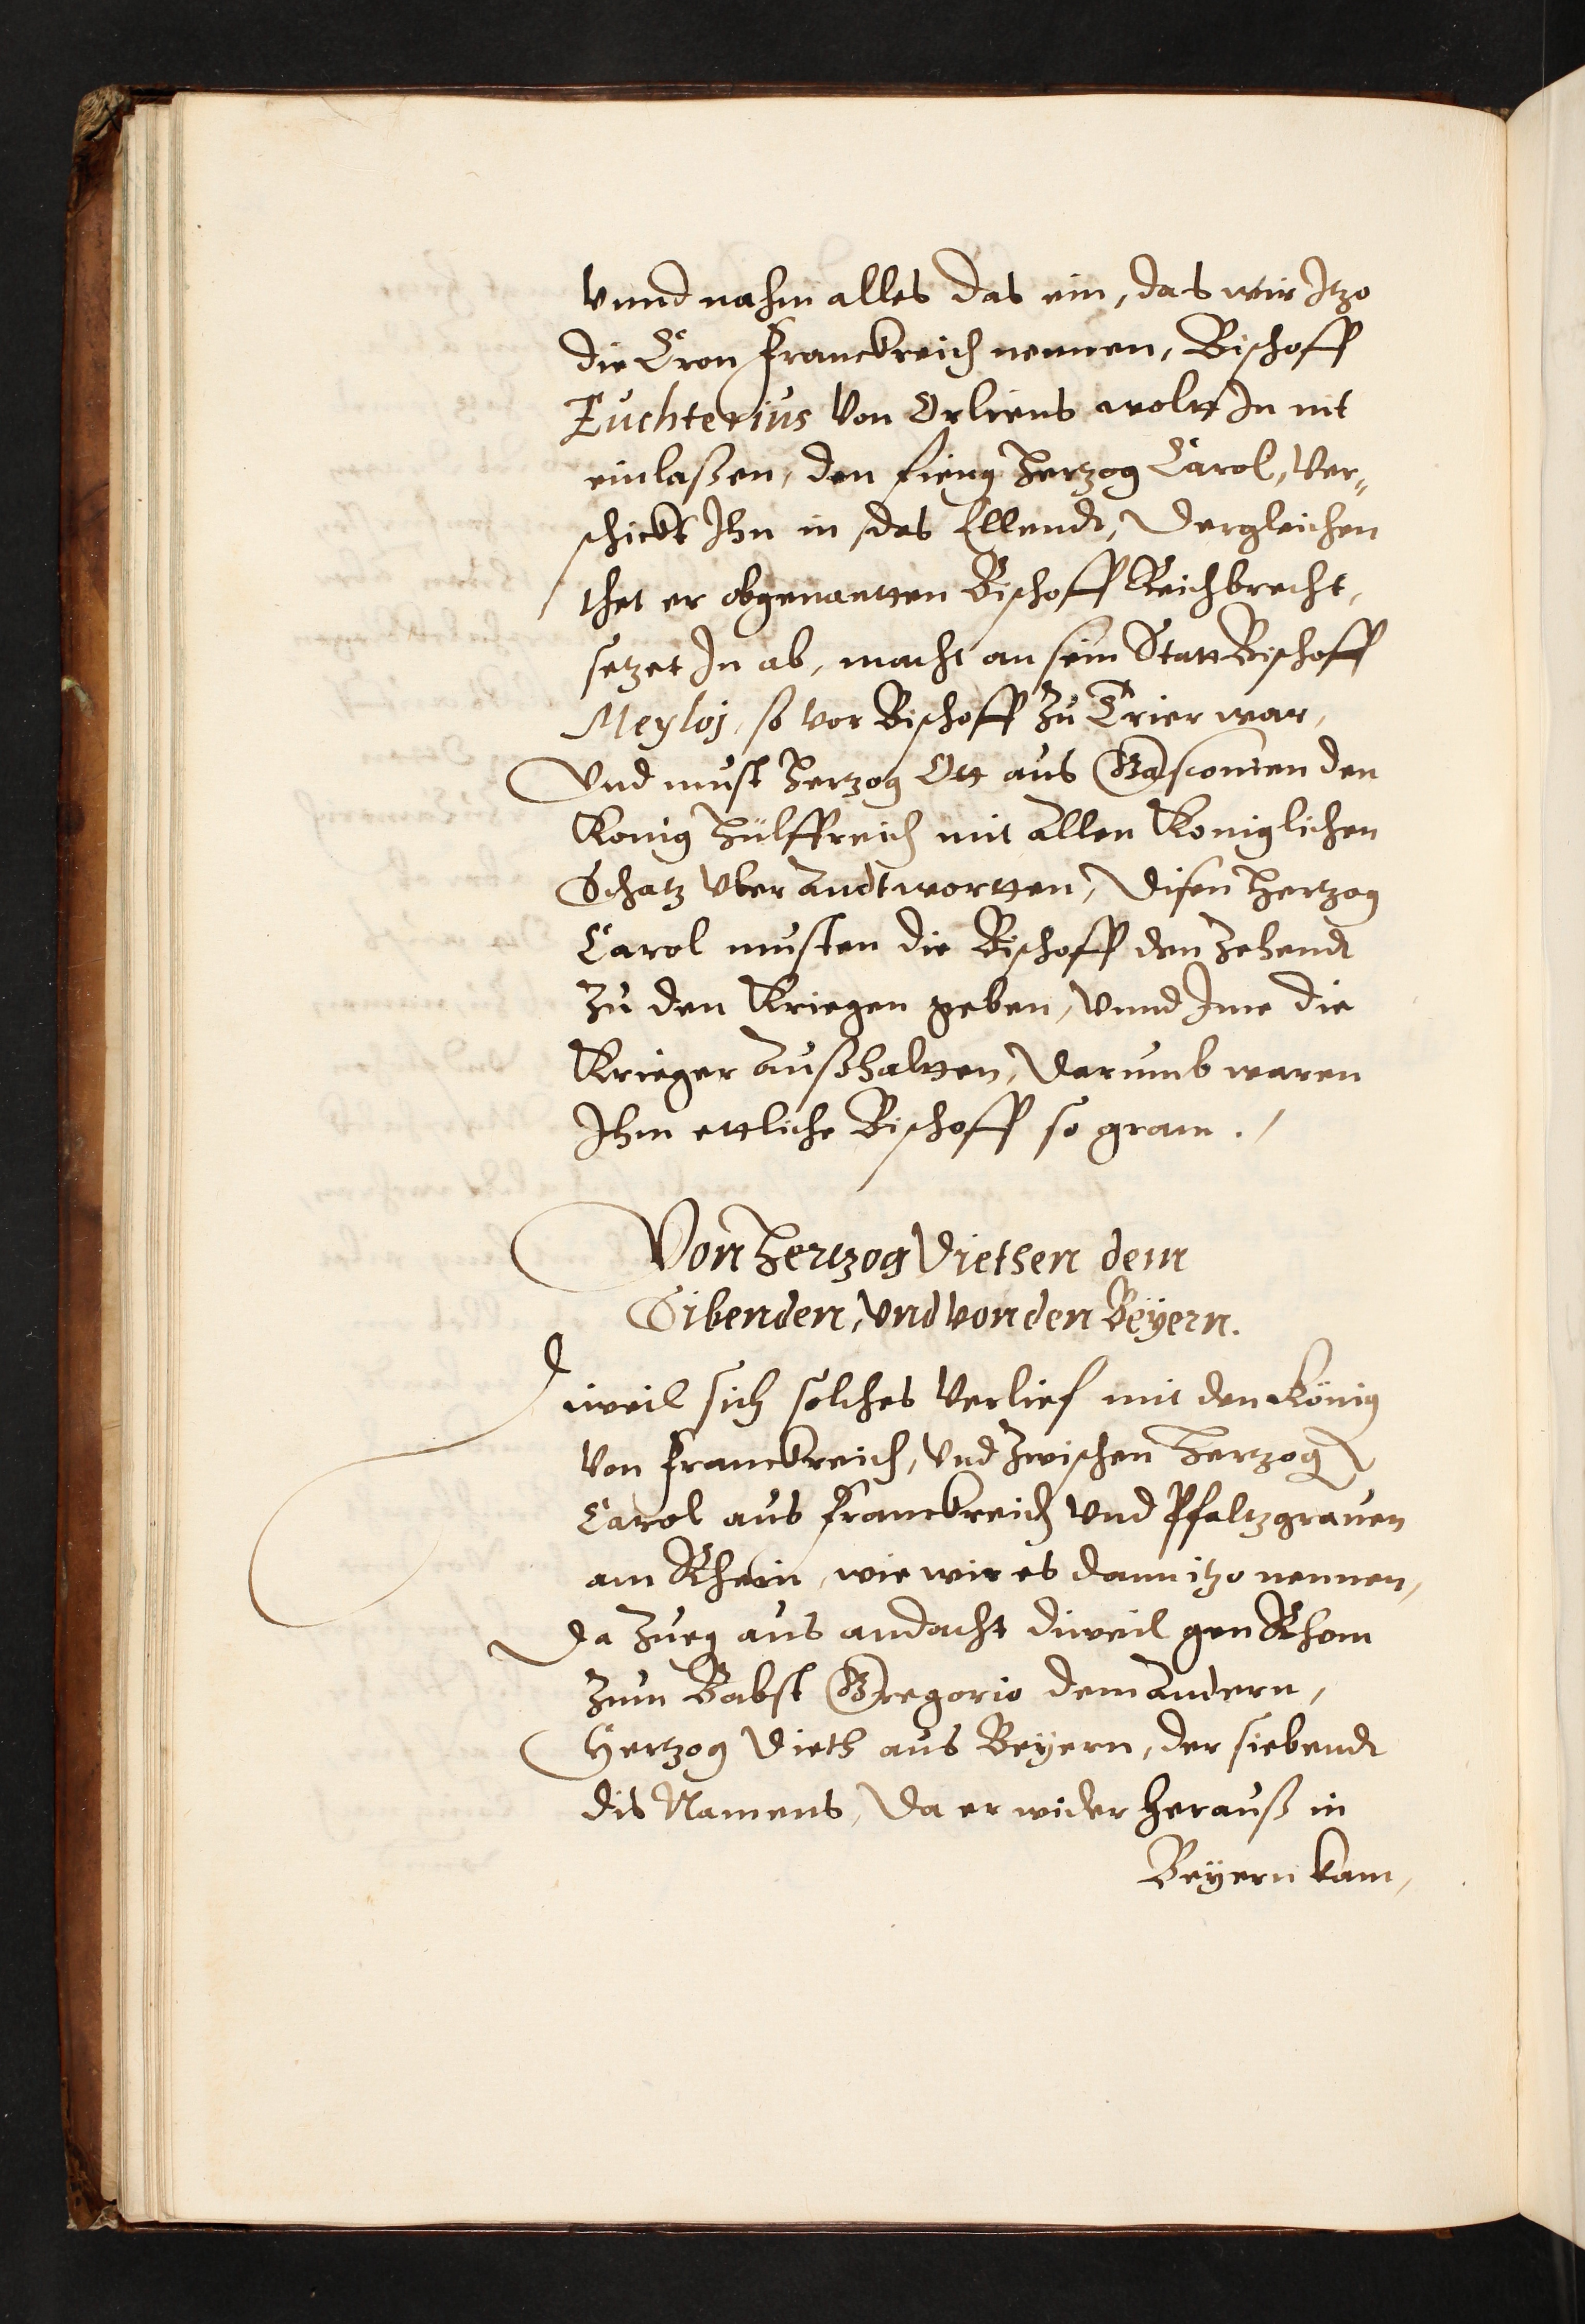 Vnnd nahm alles das ein, das wir Itzo
die Cron Franckreich nennen, Bischoff
Euchterius Von Orliens woltt In nit
einlaßen, den fieng Hertzog Carol, Ver„
schickt Ihn in das Ellendt, Dergleichen
thet er obgenantten Bischoff Reichbrecht,
setzet In ab, macht an sein Statt Bischoff
Meyloj, so vor Bischoff zu Trier war,
Vnd must Hertzog Ott aus Gasconien den
Konig Hülffreich mit allen Koniglichen
Schatz Vberandtwortten, Disen Hertzog
Carol musten die Bischoff den Zehendt
zu den Kriegen geben, Vnnd Ime die
Krieger außhaltten, Darumb waren
Ihm ettliche Bischoff so gram.
Von Hertzog Diethen dem
Sibenden, Vnd von den Beÿern.
Diweil sich solches Verlief mit den König
Von Franckreich, Vnd zwischen Hertzog
Carol aus Franckreich Vnd Pfaltzgrauen
am Rhein, wie wir es dann itzo nennen,
Da zueg aus andacht diweil gen Rhom
zum Babst Gregorio dem Andern,
Hertzog Dieth aus Beÿern, der siebendt
dis Namens, Da er wider herauß in
Beÿern kam,